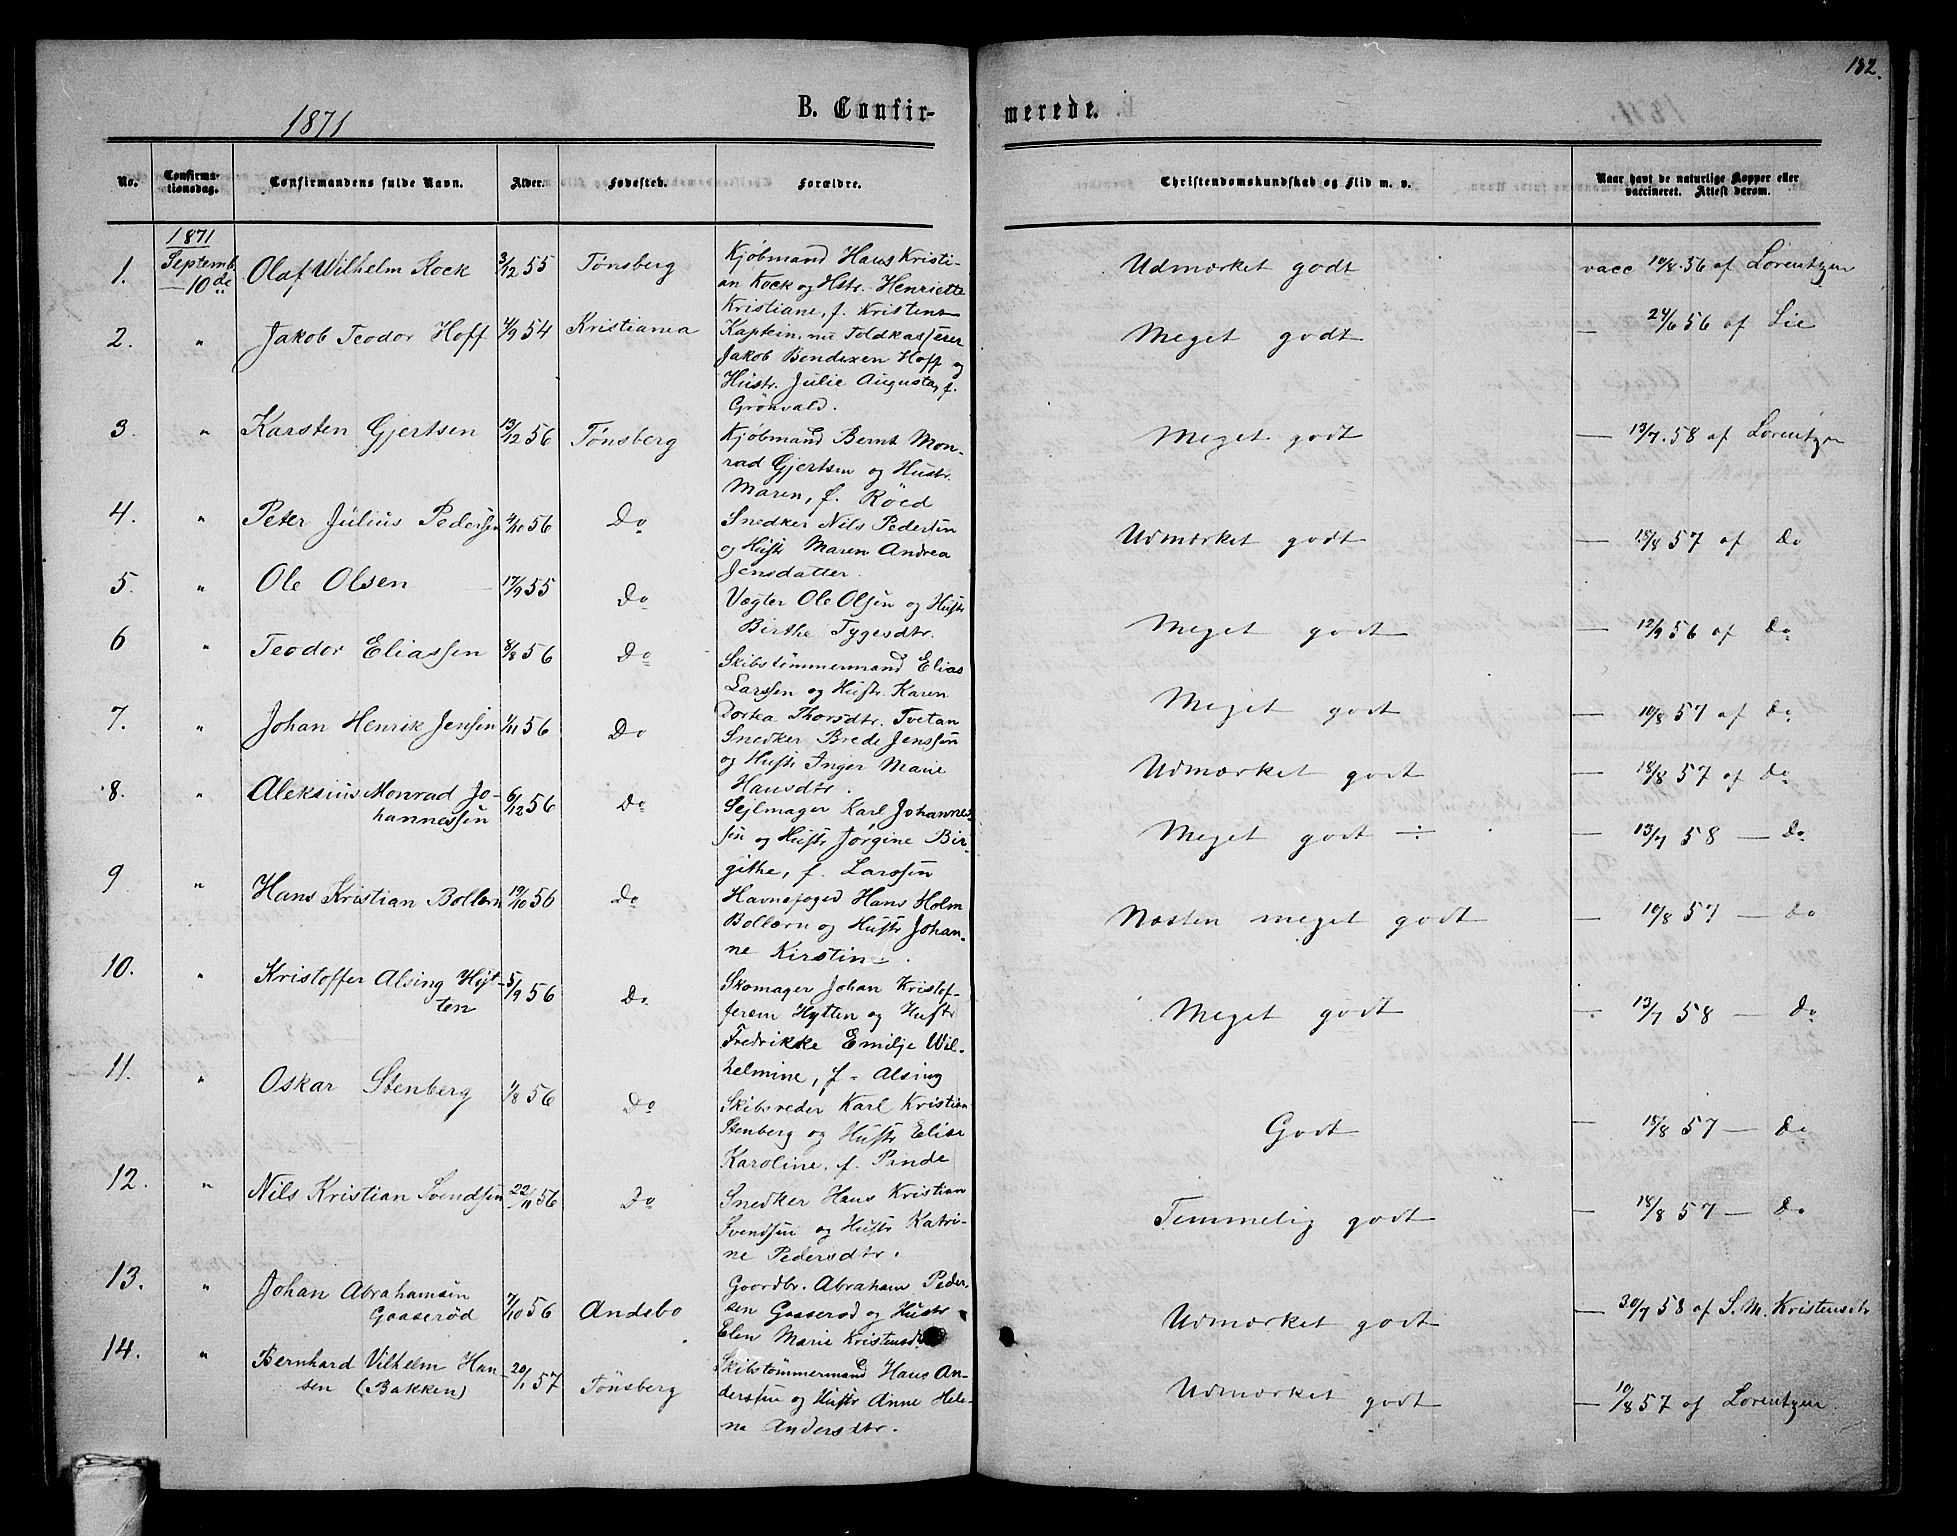 132.
1871
B. Confir- merede.
No. Confirmationsdag. Confirmandens fulde Navn. Alder. Fødested. Forældre. Christendomskundskab og Flid m. v. Naar havt de naturlige Kopper eller vaccineret. Attest derom.
1871
1. Septemb. Olaf Wilhelm Kock 3/12 55 Tønsberg Kjøbmand Hans Kristi- Udmærket godt vacc 10/8 56 af Lorentzen
10de an Kock og Hstr. Henriette
Kristiane, f. Kristens
2. " Jakob Teodor Hoff 4/9 54 Kristiania Kaptein, nu Toldkasserer Meget godt — 24/6 56 af Lie
Jakob Bendixen Hoff og
Hustr. Julie Augusta, f.
Grönvald.
3. " Karsten Gjertsen 13/12 56 Tønsberg Kjøbmand Bernt Mon- Meget godt — 13/7 58 af Lorentzen
rad Gjertsen og Hustr.
Maren, f. Röed
4. " Peter Julius Pedersen 4/10 56 Do Snedker Nils Pedersen Udmærket godt — 18/8 57 af Do
og Hustr Maren Andrea
Jensdatter.
5. " Ole Olsen 17/9 55 Do Vægter Ole Olsen og Hustr Meget godt — 12/9 56 af Do
Birthe Tygesdtr.
6 " Teodor Eliassen 8/8 56 Do Skibstömmermand Elias Meget godt — 10/8 57 af Do
Larssen og Hustr. Karen
Dortea Thorsdtr. Tvetan
7. " Johan Henrik Jenssen 1/11 56 Do Snedker Brede Jenssen Udmærket godt — 18/8 57 af Do
og Hustr Inger Marie
Hansdtr.
8. " Aleksius Monrad Jo- 6/12 56 Do Sejlmager Karl Johannes- Meget godt ÷ — 13/7 58 — Do
hannessen sen og Hustr Jørgine Bir-
githe, f. Larssen
9 " Hans Kristian Bollærn 19/10 56 Do Havnefoged Hans Holm Næsten meget godt — 10/8 57 — Do
Bollærn og Hustr Johan-
ne Kirstine.
10. " Kristoffer Alsing Hyt- 5/9 56 Do Skomager Johan Kristof- Meget godt — 13/7 58 — Do
ten fersen Hytten og Hustr
Fredrikke Emilje Wil-
helmine, f. Alsing
11. " Oskar Stenberg 1/8 56 Do Skibsreder Karl Kristian Godt — 18/8 57 — Do
Stenberg og Hustr Elise
Karoline, f. Pinde
12. " Nils Kristian Svendsen 22/11 56 Do Snedker Hans Kristian Temmelig godt — 18/8 57 — Do
Svendsen og Hustr Katri-
ne Pedersdtr.
13. " Johan Abrahamsen 7/10 56 Andebo Gaardbr. Abraham Peder- Udmærket godt — 30/7 58 af S. M. Kristenstr
Gaaserød sen Gaaserød og Hustr
Elen Marie Kristensd
14. " Bernhard Vilhelm Han- 20/1 57 Tönsberg Skibstömmermand Hans An- Udmærket godt — 10/8 57 af Lorentzen.
sen (Bakken) derssen og Hustr Anne Hele-
na Andersdtr.